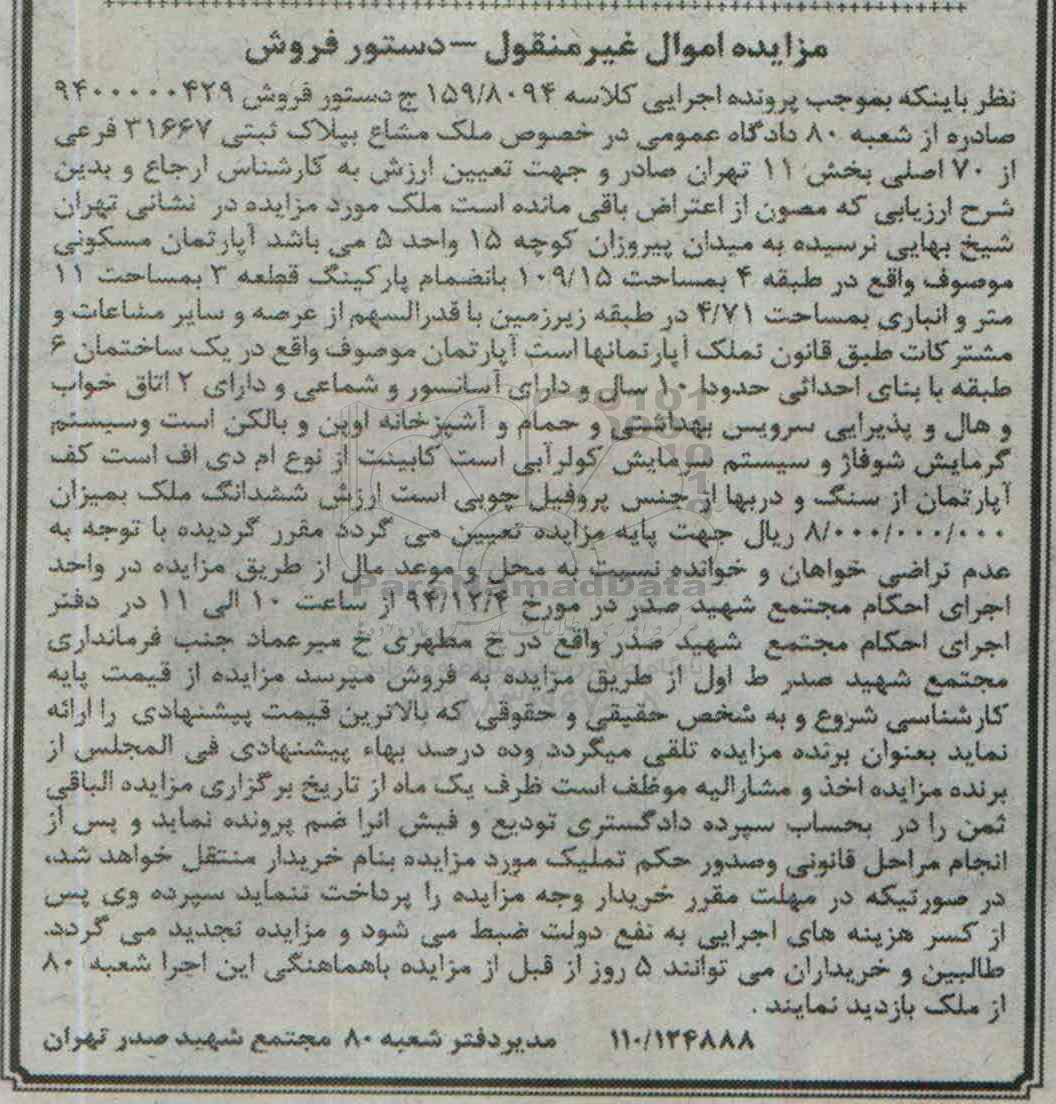 مزایده اموال غیرمنقول – دستور فروش
نظر باینکه بموجب پرونده اجرایی کلاسه ۱۵۹/۸۰۹۴ ج دستور فروش ۹۴۰۰۰۰۰۴۲۹
صادره از شعبه ۸۰ دادگاه عمومی در خصوص ملک مشاع بپلاک ثبتی ۳۱۶۶۷ فرعی
از ۷۰ اصلی بخش ۱۱ تهران صادر و جهت تعیین ارزش به کارشناس ارجاع و بدین
شرح ارزیابی که مصون از اعتراض باقی مانده است ملک مورد مزایده در نشانی تهران
شیخ بهایی نرسیده به میدان پیروزان کوچه ۱۵ واحد ۵ می باشد آپارتمان مسکونی
موصوف واقع در طبقه ۴ بمساحت ۱۰۹/۱۵ بانضمام پارکینگ قطعه ۳ بمساحت ۱۱
متر و انباری بمساحت ۴/۷۱ در طبقه زیرزمین با قدرالسهم از عرصه و سایر مشاعات و
مشترکات طبق قانون تملک آپارتمانها است آپارتمان موصوف واقع در یک ساختمان ۶
طبقه با بنای احداثی حدودا ۱۰ سال و دارای آسانسور و شماعی و دارای ۲ اتاق خواب
و هال و پذیرایی سرویس بهداشتی و حمام و آشپزخانه اوپن و بالکن است وسیستم
گرمایش شوفاژ و سیستم سرمایش کولرآبی است کابینت از نوع ام دی اف است کف
آپارتمان از سنگ و دربها از جنس پروفیل چوبی است ارزش ششدانگ ملک بمیزان
۸/۰۰۰/۰۰۰/۰۰۰ ریال جهت پایه مزایده تعیین می گردد مقرر گردیده با توجه به
عدم تراضی خواهان و خوانده نسبت به محل و موعد مال از طریق مزایده در واحد
اجرای احکام مجتمع شهید صدر در مورخ ۹۴/۱۲/۴ از ساعت ۱۰ الی ۱۱ در دفتر
اجرای احکام مجتمع شهید صدر واقع در خ مطهری خ میرعماد جنب فرمانداری
مجتمع شهید صدر ط اول از طریق مزایده به فروش میرسد مزایده از قیمت پایه
کارشناسی شروع و به شخص حقیقی و حقوقی که بالاترین قیمت پیشنهادی را ارائه
نماید بعنوان برنده مزایده تلقی میگردد وده درصد بهاء پیشنهادی فی المجلس از
برنده مزایده اخذ و مشارالیه موظف است ظرف یک ماه از تاریخ برگزاری مزایده الباقی
ثمن را در بحساب سپرده دادگستری تودیع و فیش انرا ضم پرونده نماید و پس از
انجام مراحل قانونی وصدور حکم تملیک مورد مزایده بنام خریدار منتقل خواهد شد،
در صورتیکه در مهلت مقرر خریدار وجه مزایده را پرداخت ننماید سپرده وی پس
از کسر هزینه های اجرایی به نفع دولت ضبط می شود و مزایده تجدید می گردد.
طالبین و خریداران می توانند ۵ روز از قبل از مزایده باهماهنگی این اجرا شعبه ۸۰
از ملک بازدید نمایند .
۱۱۰/۱۳۴۸۸۸ مدیردفتر شعبه ۸۰ مجتمع شهید صدر تهران
ParsNamadData